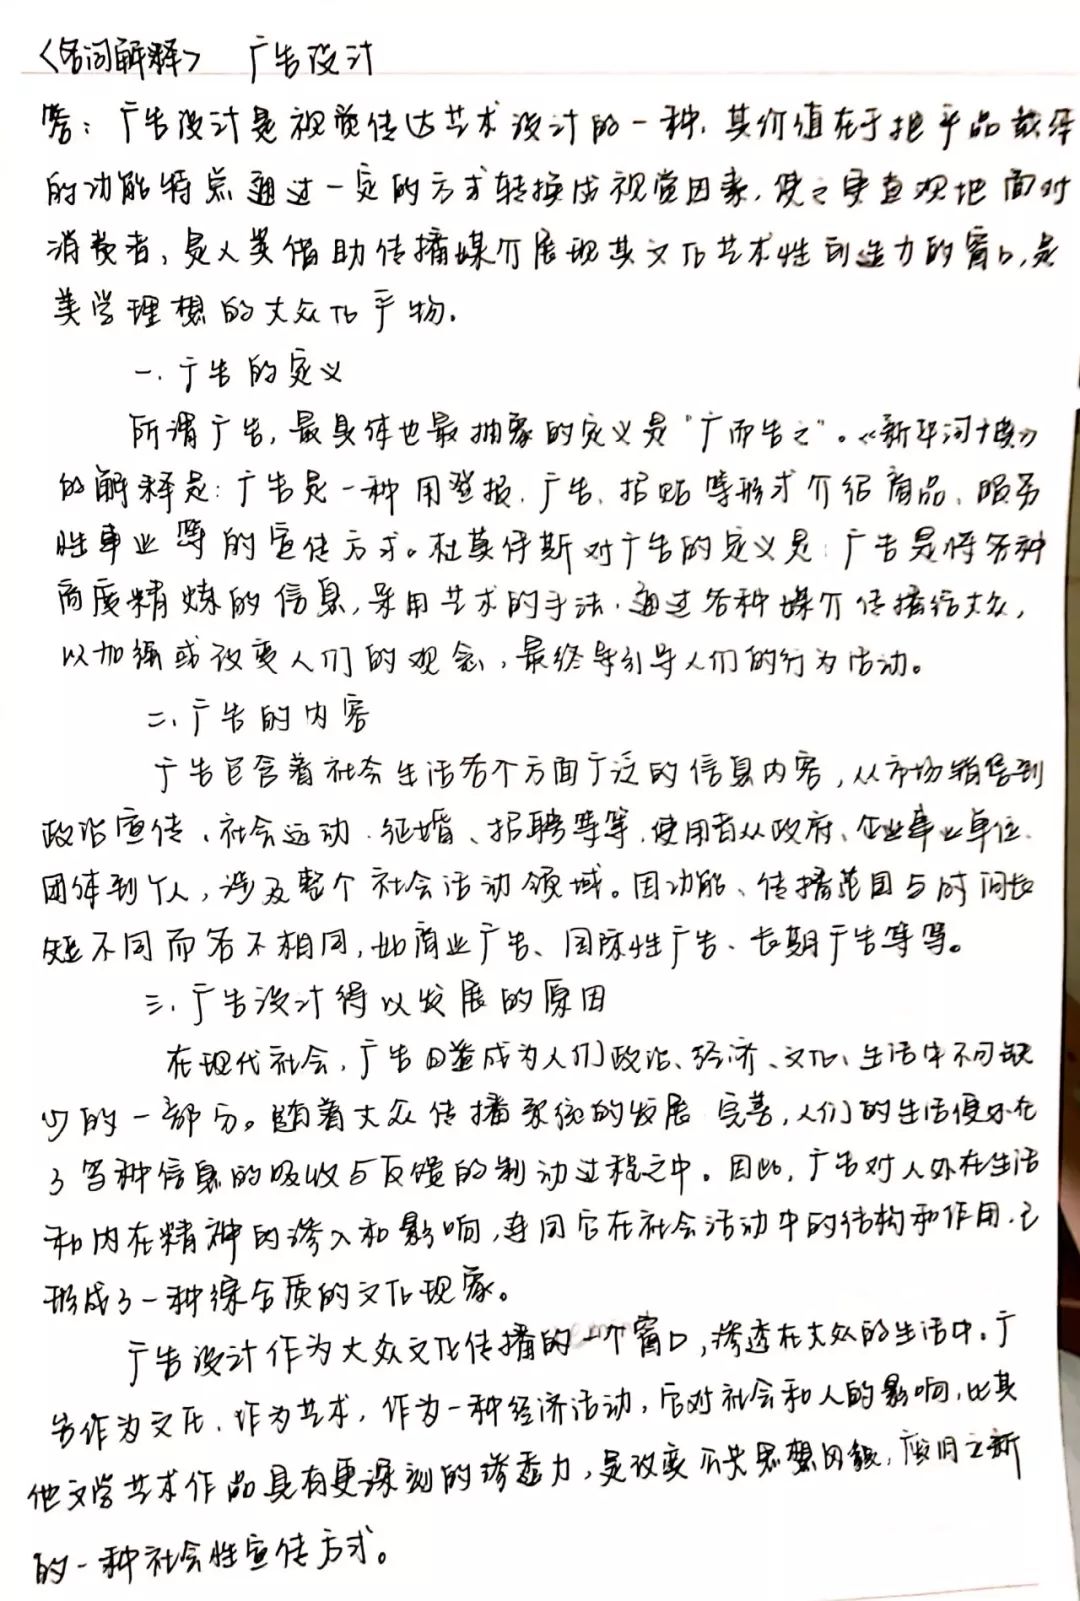 〈名词解释〉 广告设计
答：广告设计是视觉传达艺术设计的一种，其价值在于把产品载体
的功能特点通过一定的方式转换成视觉因素，使之更直观地面对
消费者，是人类借助传播媒介展现其文化艺术性创造力的窗口，是
美学理想的大众化产物．
一．广告的定义
所谓广告，最具体也最抽象的定义是“广而告之”。《新华词典》
的解释是：广告是一种用登报、广告、招贴等形式介绍商品、服务
性事业等的宣传方式。杜莫伊斯对广告的定义是：广告是将各种
高度精炼的信息，采用艺术的手法，通过各种媒介传播给大众，
以加强或改变人们的观念，最终导引导人们的行为活动。
二、广告的内容
广告包含着社会生活各个方面广泛的信息内容，从市场销售到
政治宣传、社会运动、征婚、招聘等等，使用者从政府、企业事业单位、
团体到个人，涉及整个社会活动领域。因功能、传播范围与时间长
短不同而各不相同，如商业广告、国际性广告、长期广告等等。
三．广告设计得以发展的原因
在现代社会，广告日益成为人们政治、经济、文化、生活中不可缺
少的一部分。随着大众传播系统的发展完善，人们的生活便处在
了各种信息的吸收与反馈的制动过程之中。因此，广告对人外在生活
和内在精神的渗入和影响，连同它在社会活动中的结构和作用，已
形成了一种综合质的文化现象。
广告设计作为大众文化传播的一个窗口，渗透在大众的生活中．广
告作为文化、作为艺术，作为一种经济活动，它对社会和人的影响，比其
他文学艺术作品具有更深刻的渗透力，是改变公共思想风貌，废旧立新
的一种社会性宣传方式。